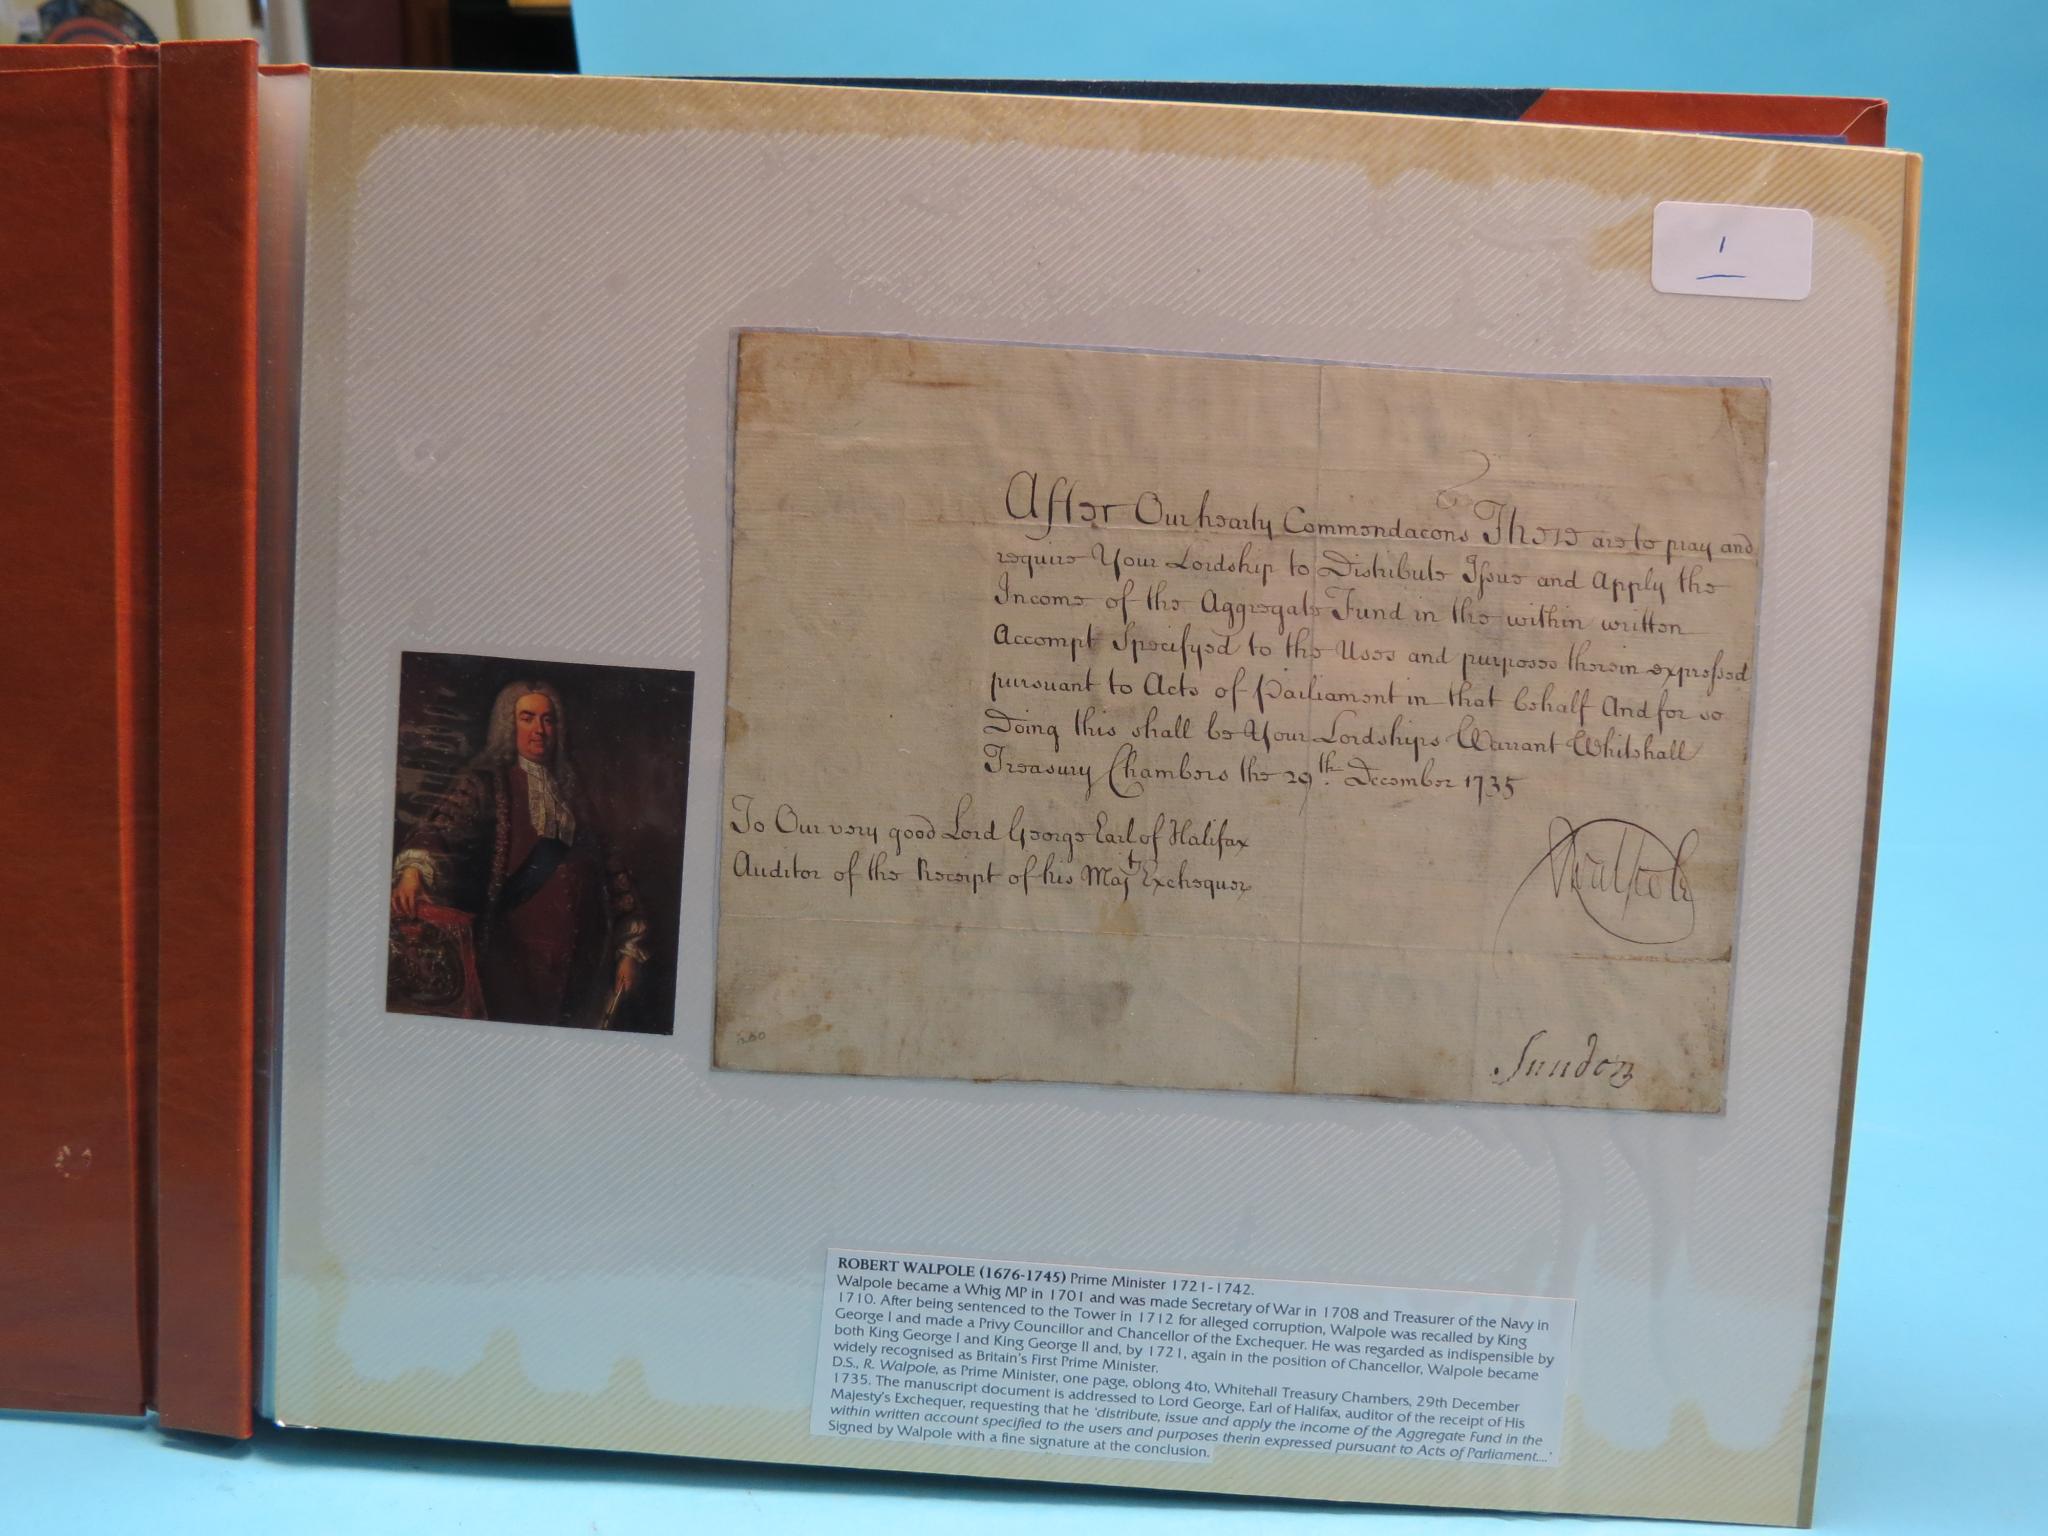 1
After Our hearty Commendacons These are to pray and
require Your Lordship to Distribute Issue and Apply the
Income of the Aggregate Fund in the within written
Accompt Specifyed to the Uses and purposes therein expressed
pursuant to Acts of Parliament in that behalf And for so
Doing this shall be Your Lordships Warrant Whitehall
Treasury Chambers the 29th. December 1735
To Our very good Lord George Earl of Halifax
Auditor of the Receipt of his Majts Exchequer
RWalpole
Sundon
ROBERT WALPOLE (1676-1745) Prime Minister 1721-1742.
Walpole became a Whig MP in 1701 and was made Secretary of War in 1708 and Treasurer of the Navy in
1710. After being sentenced to the Tower in 1712 for alleged corruption, Walpole was recalled by King
George I and made a Privy Councillor and Chancellor of the Exchequer. He was regarded as indispensible by
both King George I and King George II and, by 1721, again in the position of Chancellor, Walpole became
widely recognised as Britain's First Prime Minister.
D.S., R. Walpole, as Prime Minister, one page, oblong 4to, Whitehall Treasury Chambers, 29th December
1735. The manuscript document is addressed to Lord George, Earl of Halifax, auditor of the receipt of His
Majesty's Exchequer, requesting that he 'distribute, issue and apply the income of the Aggregate Fund in the
within written account specified to the users and purposes therin expressed pursuant to Acts of Parliament....'
Signed by Walpole with a fine signature at the conclusion.